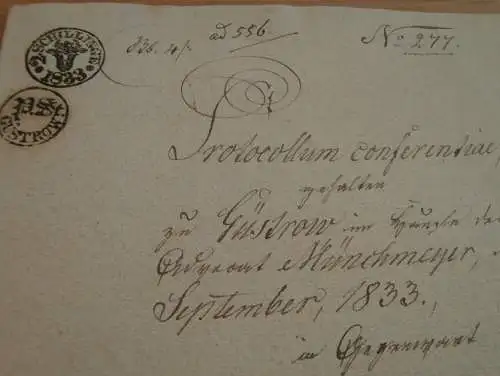 2 SCHILLINGE 1833
GÜSTROW
ad 556.
No 277.
Protocollum conferentiae,
gehalten
zu Güstrow im Hause des
Advocat Münchmeyer,
September, 1833.,
in Gegenwart